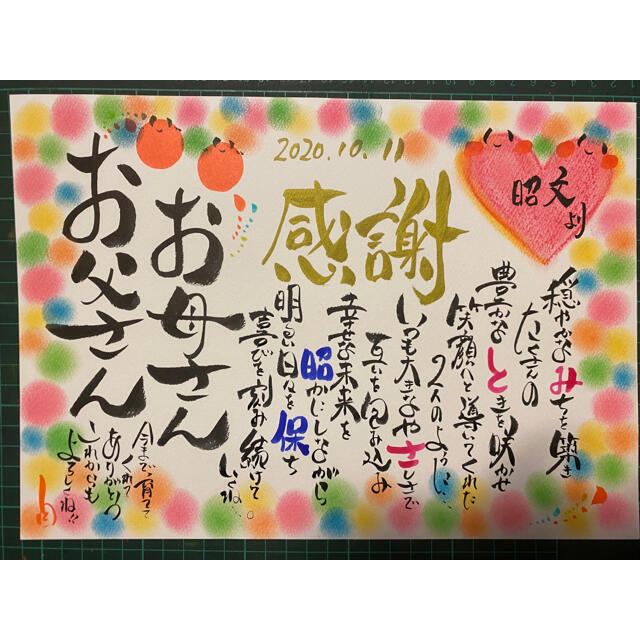 2020.10.11
感謝
昭文
より
穏やかなみちを築き
たくさんの
豊かなときを咲かせ
笑顔へと導いてくれた
2人のように…
いつも大きなやさしさで
互いを包み込み
幸せな未来を
昭かし
明るい日々を保ち
喜びを刻み続けて
いくね…
お母さん
お父さん
今まで育てて
くれて
ありがとう
これからも
よろしくね!!